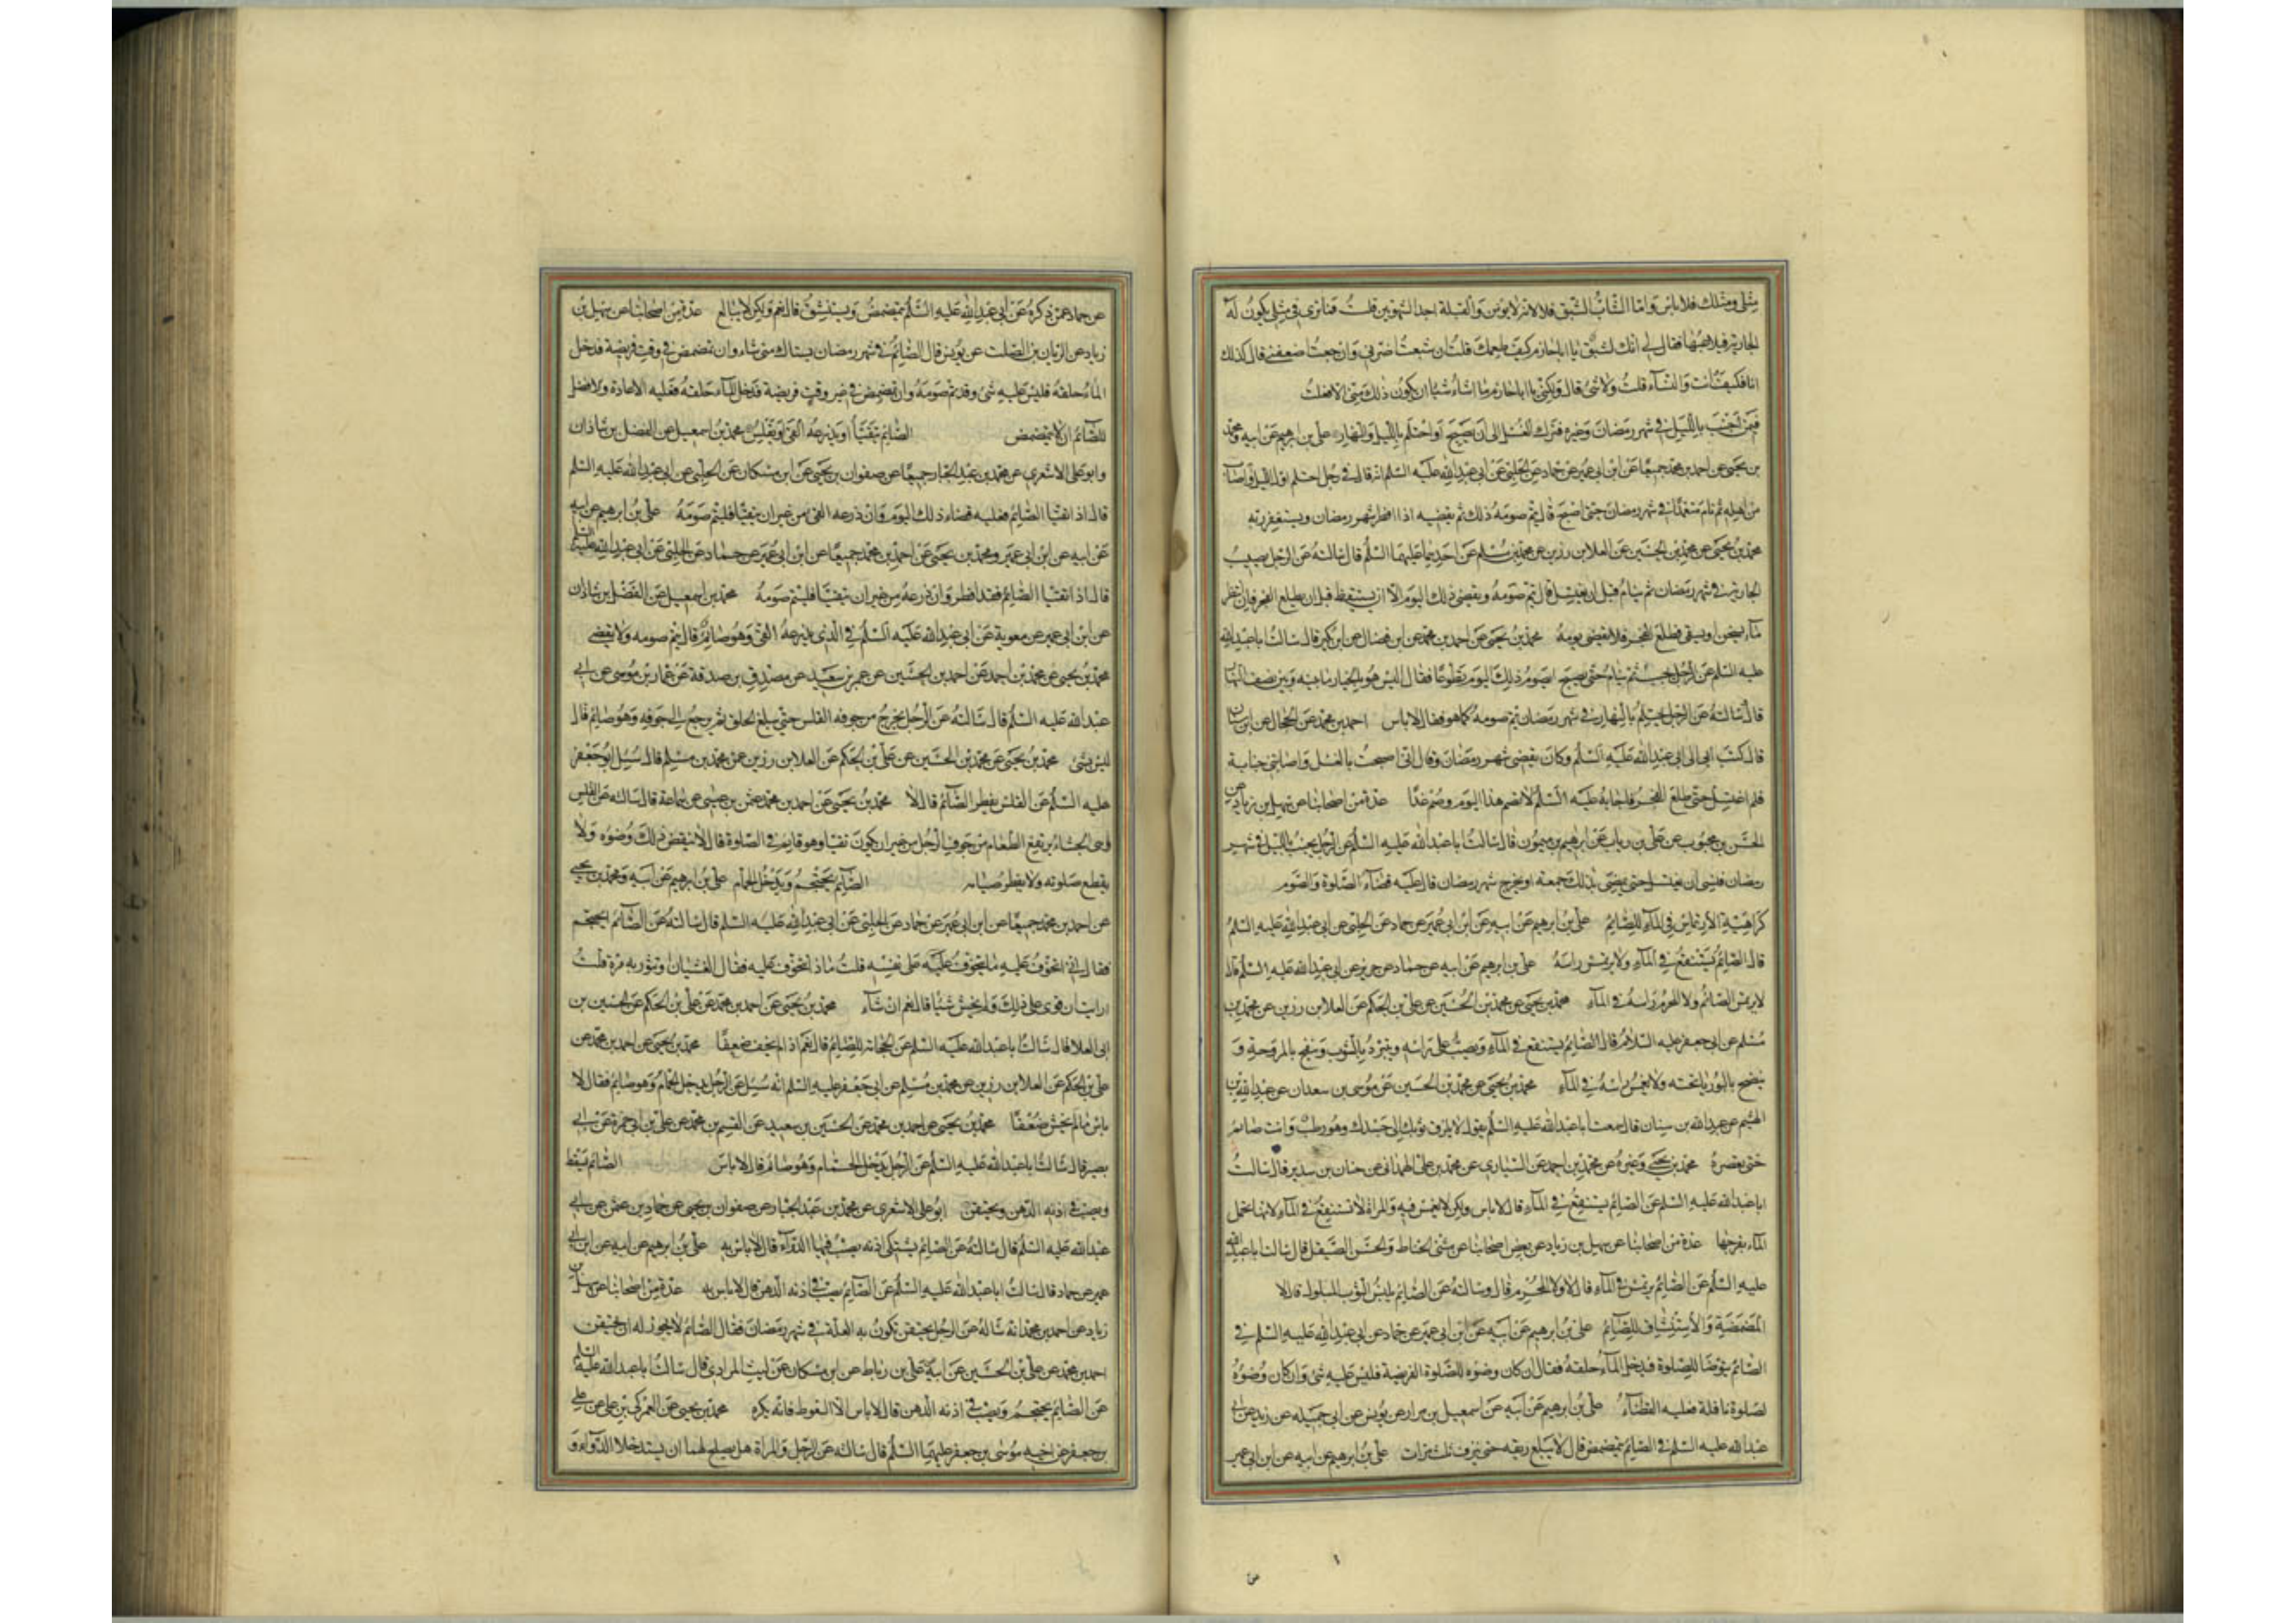 مثلي ومثلك فلا باس واما الشاب الشبق فلا لانه لا يؤمن والقبلة احد الشهوتين قلت فما ترى في مثلي يكون له
الجارية فيلاعبها فقال لي انك لشبق يا ابا حازم كيف طعمك قلت ان شبعت اضرني وان جعت اضعفني قال كذلك
انا فكيف انت والنساء قلت ولا شئ قال ولكني يا ابا حازم ما اشاء شيئا ان يكون ذلك مني الا فعلت
فيمن اجنب بالليل في شهر رمضان وغيره فترك الغسل الى ان يصبح او احتلم بالليل والنهار علي بن ابرهيم عن ابيه ومحمد
بن يحيى عن احمد بن محمد جميعا عن ابن ابي عمير عن حماد عن الحلبي عن ابي عبد الله عليه السلم انه قال في رجل احتلم اول الليل او اصاب
من اهله ثم نام متعمدا في شهر رمضان حتى اصبح قال يتم صومه ذلك ثم يقضيه اذا افطر شهر رمضان ويستغفر ربه
محمد بن يحيى عن محمد بن الحسين عن العلا بن رزين عن محمد بن مسلم عن احدهما عليهما السلم قال سالته عن الرجل يصيب
الجارية في شهر رمضان ثم ينام قبل ان يغتسل قال يتم صومه ويقضي ذلك اليوم الا ان يستيقظ قبل ان يطلع الفجر فان انتظر
ماء يسخن او يستقى فطلع الفجر فلا يقضي يومه محمد بن يحيى عن احمد بن محمد عن ابن فضال عن ابن بكير قال سالت ابا عبد الله
عليه السلم عن الرجل يجنب ثم ينام حتى يصبح ايصوم ذلك اليوم تطوعا فقال اليس هو بالخيار ما بينه وبين نصف النهار
قال سالته عن الرجل يحتلم بالنهار في شهر رمضان يتم صومه كما هو فقال لا باس احمد بن محمد عن الحجال عن ابن سنان
قال كتب ابي الى ابي عبد الله عليه السلم وكان يقضي شهر رمضان وقال اني اصبحت بالغسل واصابتني جنابة
فلم اغتسل حتى طلع الفجر فاجابه عليه السلم لا تصم هذا اليوم وصم غدا عدة من اصحابنا عن سهل بن زياد عن
الحسن بن محبوب عن علي بن رياب عن ابرهيم بن ميمون قال سالت ابا عبد الله عليه السلم عن الرجل يجنب بالليل في شهر
رمضان فنسي ان يغتسل حتى يمضي بذلك جمعة او يخرج شهر رمضان قال عليه قضاء الصلوة والصوم
كراهية الارتماس في الماء للصائم علي بن ابرهيم عن ابيه عن ابن ابي عمير عن حماد عن الحلبي عن ابي عبد الله عليه السلم
قال الصائم يستنقع في الماء ولا يرتمس راسه علي بن ابرهيم عن ابيه عن حماد عن حريز عن ابي عبد الله عليه السلم قال
لا يرتمس الصائم ولا المحرم راسه في الماء محمد بن يحيى عن محمد بن الحسين عن علي بن الحكم عن العلا بن رزين عن محمد بن
مسلم عن ابي جعفر عليه السلام قال الصائم يستنقع في الماء ويصب على راسه ويتبرد بالثوب وينضح بالمروحة و
ينضح البوريا تحته ولا يغمس راسه في الماء محمد بن يحيى عن محمد بن الحسين عن موسى بن سعدان عن عبد الله بن
الهيثم عن عبد الله بن سنان قال سمعت ابا عبد الله عليه السلم يقول لا يلزق ثوبك الى جسدك وهو رطب وانت صائم
حتى يعصره محمد بن يحيى وغيره عن محمد بن احمد عن السياري عن محمد بن علي الهمداني عن حنان بن سدير قال سالت
ابا عبد الله عليه السلم عن الصائم يستنقع في الماء قال لا باس ولكن لا يغمس فيه والمراة لا تستنقع في الماء لانها تحمل
الماء بفرجها عدة من اصحابنا عن سهل بن زياد عن بعض اصحابنا عن مثنى الحناط والحسن الصيقل قال سالت ابا عبد الله
عليه السلم عن الصائم يرتمس في الماء قال لا ولا المحرم قال وسالته عن الصائم يلبس الثوب المبلول قال لا
المضمضة والاستنشاق للصائم علي بن ابرهيم عن ابيه عن ابن ابي عمير عن حماد عن ابي عبد الله عليه السلم في
الصائم يتوضا للصلوة فيدخل الماء حلقه فقال ان كان وضوه للصلوة الفريضة فليس عليه شئ وان كان وضوءه
لصلوة نافلة فعليه القضاء علي بن ابرهيم عن ابيه عن اسمعيل بن مرار عن يونس عن ابي جميله عن زيد عن ابي
عبد الله عليه السلم في الصائم يتمضمض قال لا يبلع ريقه حتى يبزق ثلث مرات علي بن ابرهيم عن ابيه عن ابن ابي عمير
عن حماد عمن ذكره عن ابي عبد الله عليه السلم يتمضمض ويستنشق قال نعم ولكن لا يبالغ عدة من اصحابنا عن سهل بن
زياد عن الريان بن الصلت عن يونس قال الصائم في شهر رمضان يستاك متى شاء وان تمضمض في وقت فريضة فدخل
الماء حلقه فليس عليه شئ وقد تم صومه وان تمضمض في غير وقت فريضة فدخل الماء حلقه فعليه الاعادة والافضل
للصائم ان لا يتمضمض الصائم يتقيأ او يذرعه القئ او يقلس محمد بن اسمعيل عن الفضل بن شاذان
وابو علي الاشعري عن محمد بن عبد الجبار جميعا عن صفوان بن يحيى عن ابن مسكان عن الحلبي عن ابي عبد الله عليه السلم
قال اذا تقيا الصائم فعليه قضاء ذلك اليوم وان ذرعه القئ من غير ان يتقيا فليتم صومه علي بن ابرهيم عن ابيه
عن ابيه عن ابن ابي عمير ومحمد بن يحيى عن احمد بن محمد جميعا عن ابن ابي عمير عن حماد عن الحلبي عن ابي عبد الله عليه السلم
قال اذا تقيا الصائم فقد افطر وان ذرعه من غير ان يتقيا فليتم صومه محمد بن اسمعيل عن الفضل بن شاذان
عن ابن ابي عمير عن معوية عن ابي عبد الله عليه السلم في الذي يذرعه القئ وهو صائم قال يتم صومه ولا يقضي
محمد بن يحيى عن محمد بن احمد عن احمد بن الحسين عن عمرو بن سعيد عن مصدق بن صدقة عن عمار بن موسى عن ابي
عبد الله عليه السلم قال سالته عن الرجل يخرج من جوفه القلس حتى يبلغ الحلق ثم يرجع الى جوفه وهو صائم قال
ليس بشئ محمد بن يحيى عن محمد بن الحسين عن علي بن الحكم عن العلا بن رزين عن محمد بن مسلم قال سئل ابو جعفر
عليه السلم عن القلس يفطر الصائم قال لا محمد بن يحيى عن احمد بن محمد عن عثمن بن عيسى عن سماعة قال سالته عن القلس
وهي الجشاء يرتفع الطعام من جوف الرجل من غير ان يكون تقيا وهو قايم في الصلوة قال لا ينقض ذلك وضوه ولا
يقطع صلوته ولا يفطر صيامه الصائم يحتجم ويدخل الحمام علي بن ابرهيم عن ابيه ومحمد بن يحيى
عن احمد بن محمد جميعا عن ابن ابي عمير عن حماد عن الحلبي عن ابي عبد الله عليه السلم قال سالته عن الصائم ايحتجم
فقال اني اتخوف عليه ما يتخوف عليه على نفسه قلت ماذا تتخوف عليه فقال الغشيان وتثور به مرة قلت
ارايت ان قوي على ذلك ولم يخش شيئا قال نعم ان شاء محمد بن يحيى عن احمد بن محمد عن علي بن الحكم عن الحسين بن
ابي العلا قال سالت ابا عبد الله عليه السلم عن الحجامة للصائم قال نعم اذا لم يخف ضعفا محمد بن يحيى عن احمد بن محمد عن
علي بن الحكم عن العلا بن رزين عن محمد بن مسلم عن ابي جعفر عليه السلم انه سئل عن الرجل يدخل الحمام وهو صائم فقال لا
باس ما لم يخش ضعفا محمد بن يحيى عن احمد بن محمد عن الحسين بن سعيد عن القسم بن محمد عن علي بن ابي حمزة عن ابي
بصير قال سالت ابا عبد الله عليه السلم عن الرجل يدخل الحمام وهو صائم قال لا باس الصائم يسقط
ويصب في اذنه الدهن ويحتقن ابو علي الاشعري عن محمد بن عبد الجبار عن صفوان بن يحيى عن حماد بن عثمن عن ابي
عبد الله عليه السلم قال سالته عن الصائم يشتكي اذنه يصب فيها الدواء قال لا باس به علي بن ابرهيم عن ابيه عن ابن ابي
عمير عن حماد قال سالت ابا عبد الله عليه السلم عن الصائم يصب في اذنه الدهن قال لا باس به عدة من اصحابنا عن سهل بن
زياد عن احمد بن محمد انه ساله عن الرجل يحتقن تكون به العلة في شهر رمضان فقال الصائم لا يجوز له ان يحتقن
احمد بن محمد عن علي بن الحسين عن ابيه علي بن رباط عن ابن مسكان عن ليث المرادي قال سالت ابا عبد الله عليه السلم
عن الصائم يحتجم ويصب في اذنه الدهن قال لا باس الا السعوط فانه يكره محمد بن يحيى عن العمركي بن علي عن علي
بن جعفر عن اخيه موسى بن جعفر عليهما السلم قال سالته عن الرجل والمراة هل يصلح لهما ان يستدخلا الدواء و